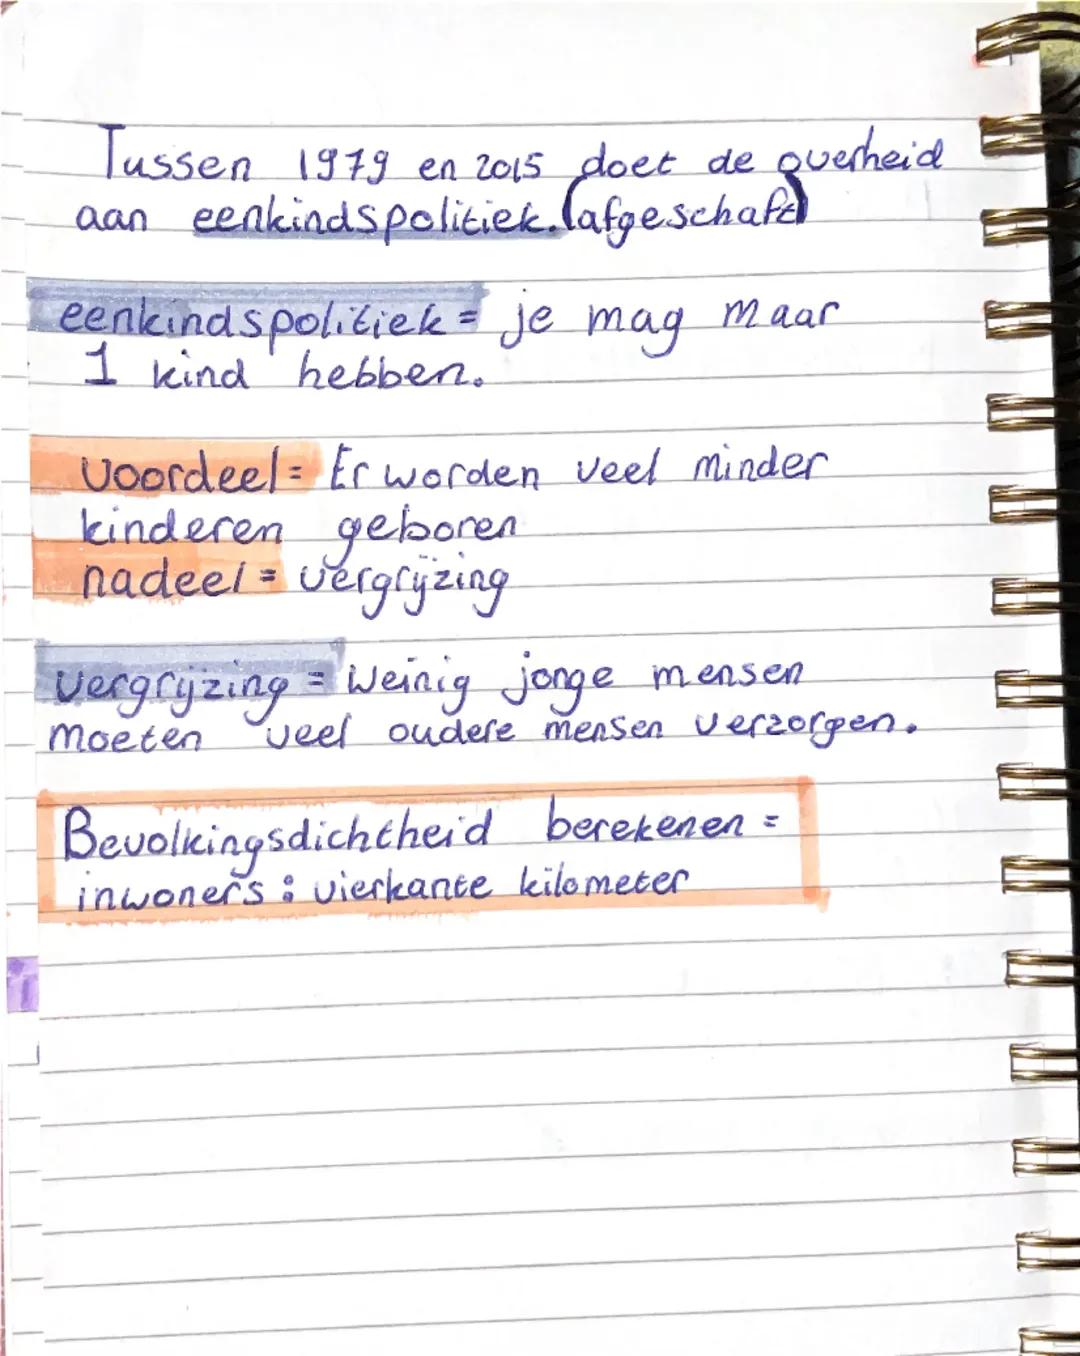 Tussen 1979 en 2015 doet de overheid
aan eenkindspolitiek. (afgeschaft)
eenkindspolitiek = je mag maar
1 kind hebben.
voordeel = Er worden veel minder
kinderen geboren
nadeel = vergrijzing
vergrijzing = Weinig jonge mensen
moeten veel oudere mensen verzorgen.
Bevolkingsdichtheid berekenen =
inwoners : vierkante kilometer